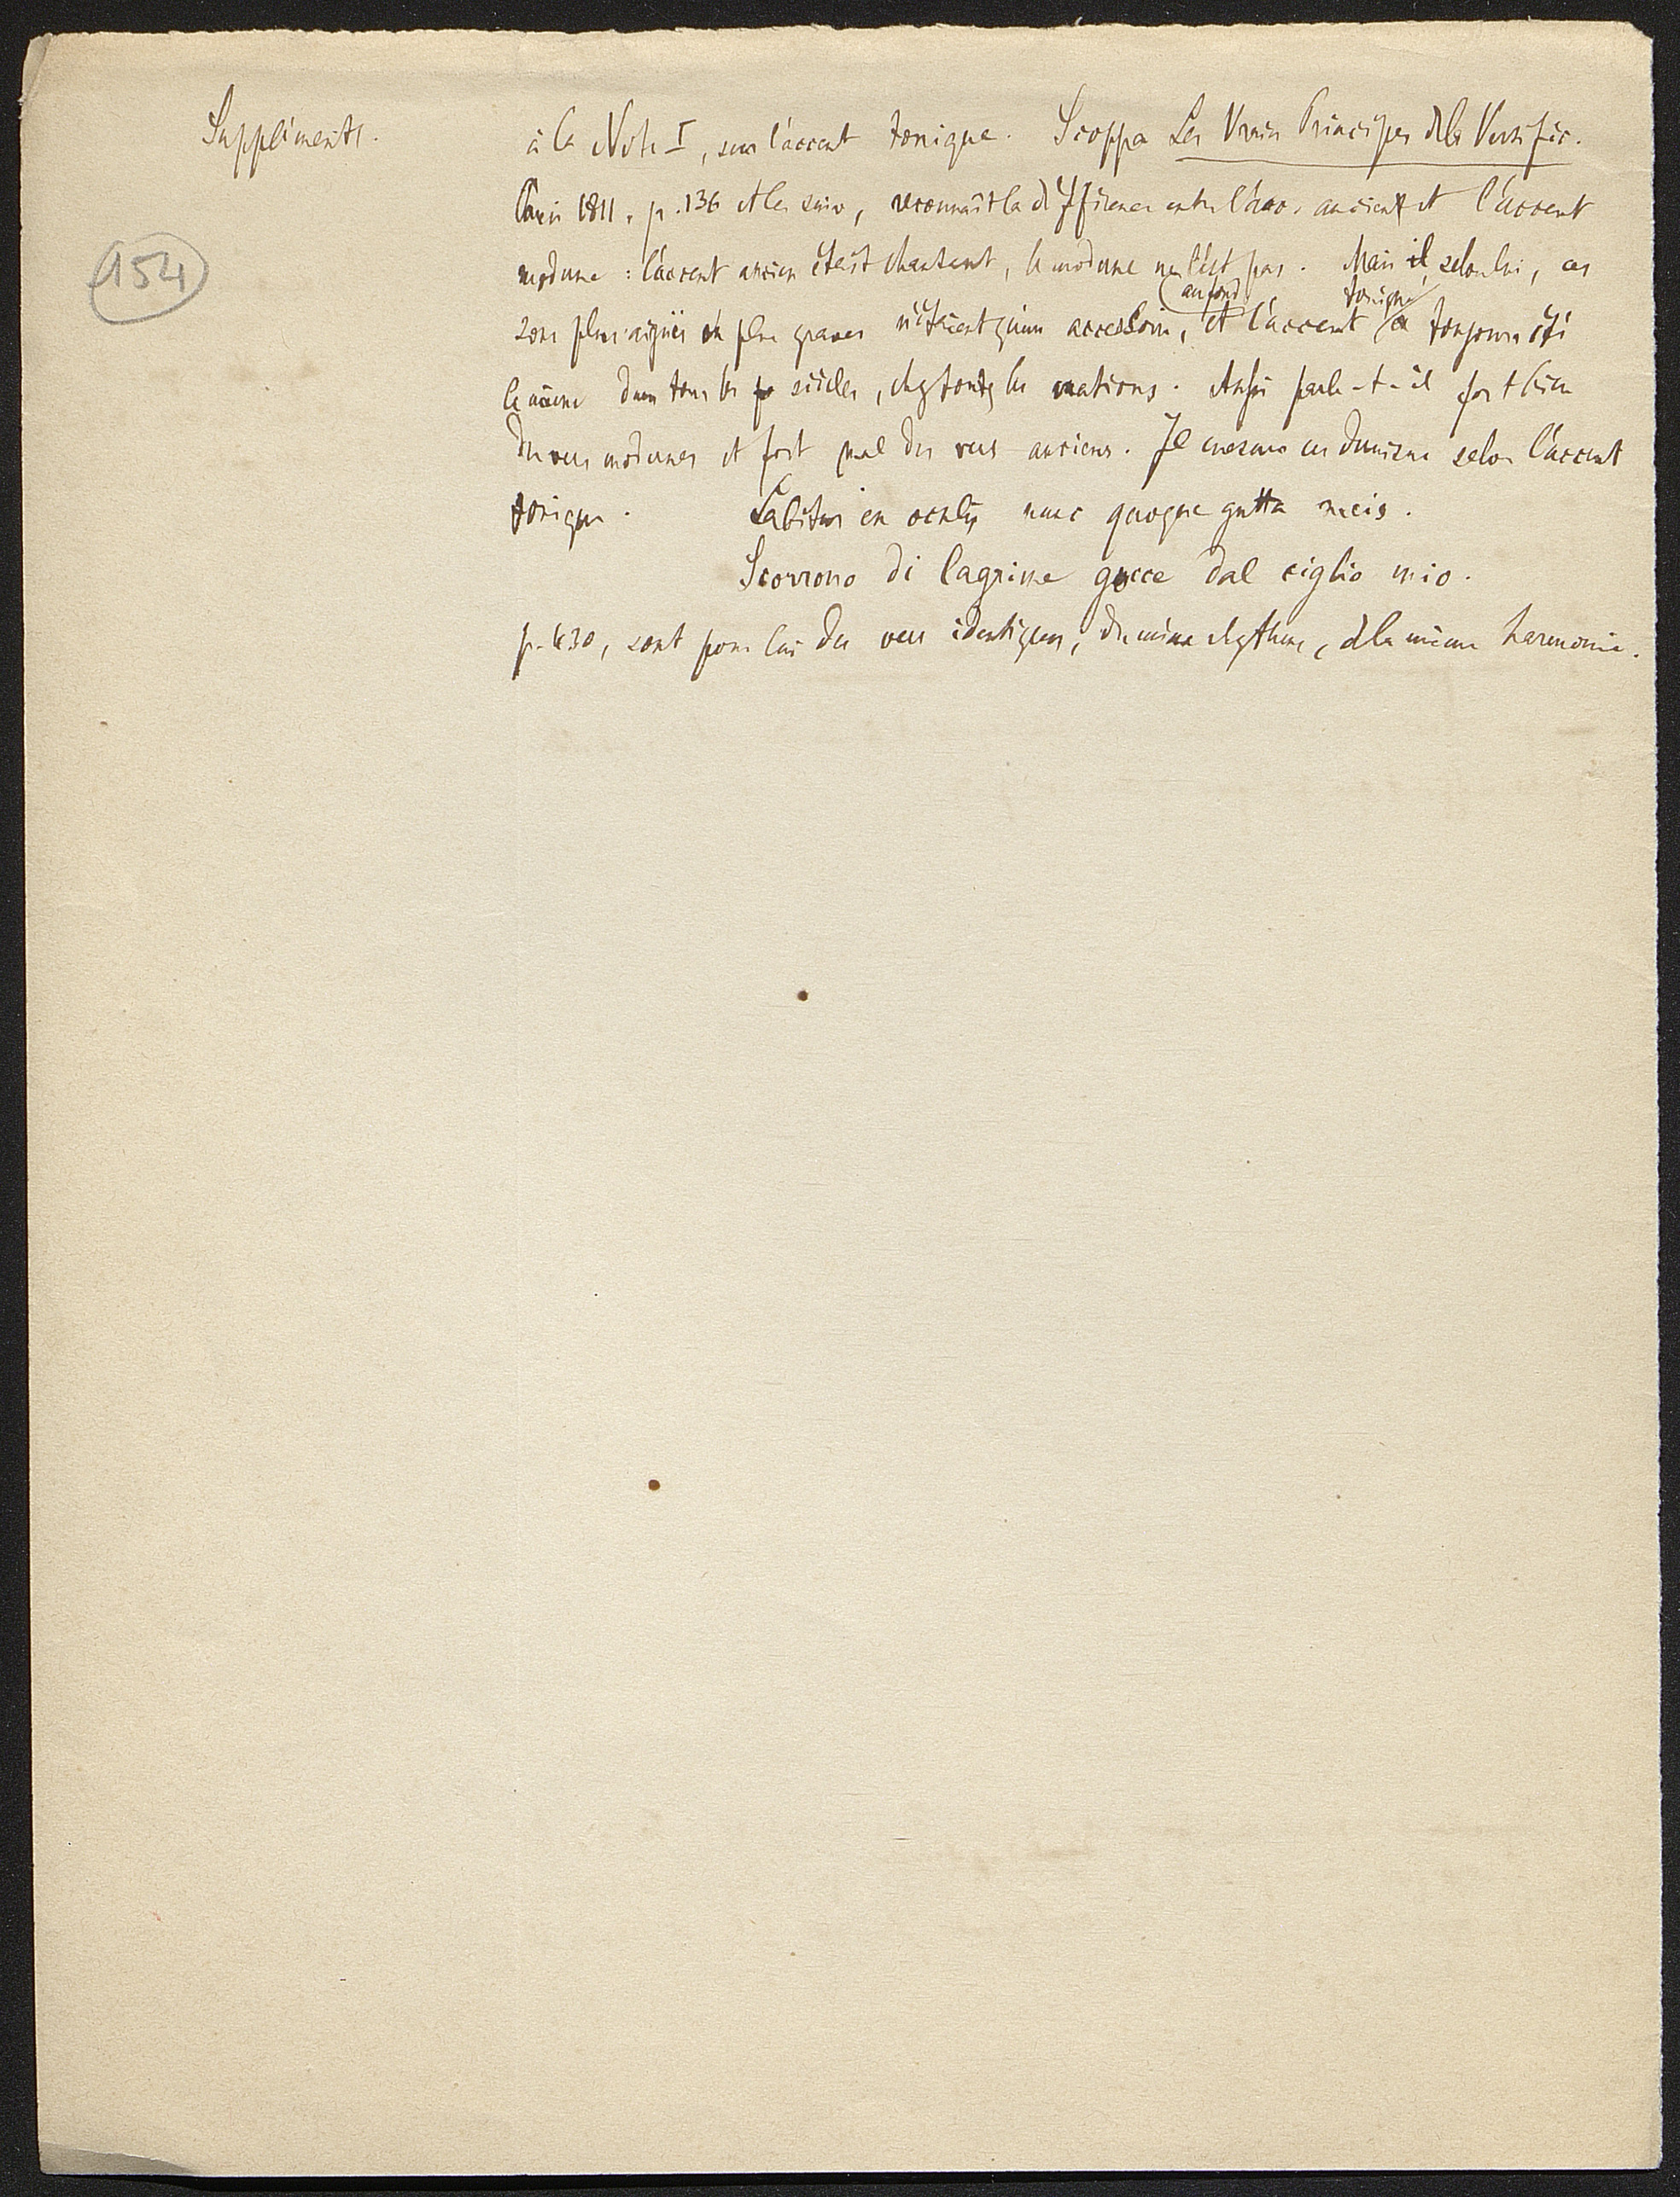 Suppléments. à la Note I, sur l'accent tonique. Scoppa Les Vrais Principes de la Versific.
Paris 1811. p. 136 et les suiv, reconnaît la différence entre l'acc. ancien et l'accent
154
moderne : l'accent ancien était chantant, le moderne ne l'est pas. Mais il, selon lui, ces
au fond tonique
sons plus aigües ou plus graves n'étaient qu'un accessoire, et l'accent a toujours été
le même dans tous les siècles, chez toutes les nations. Aussi parle-t-il fort bien
des vers modernes et fort mal des vers anciens. Il mesure ces derniers selon l'accent
tonique. Labitur ex oculis nunc quoque gutta meis.
Scorrono di lagrime gocce dal ciglio mio.
p. 430, sont pour lui des vers identiques, du même rhythme, de la même harmonie.